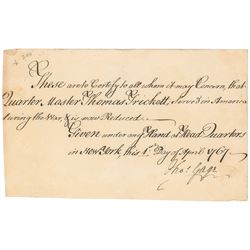 These are to Certify to all whom it may Concern, that
Quarter Master Thomas Prickett, Served in America
during the War, & is now Reduced.
Given under my Hand at Head Quarters
in New York, this 1st Day of April 1767
Tho.s Gage